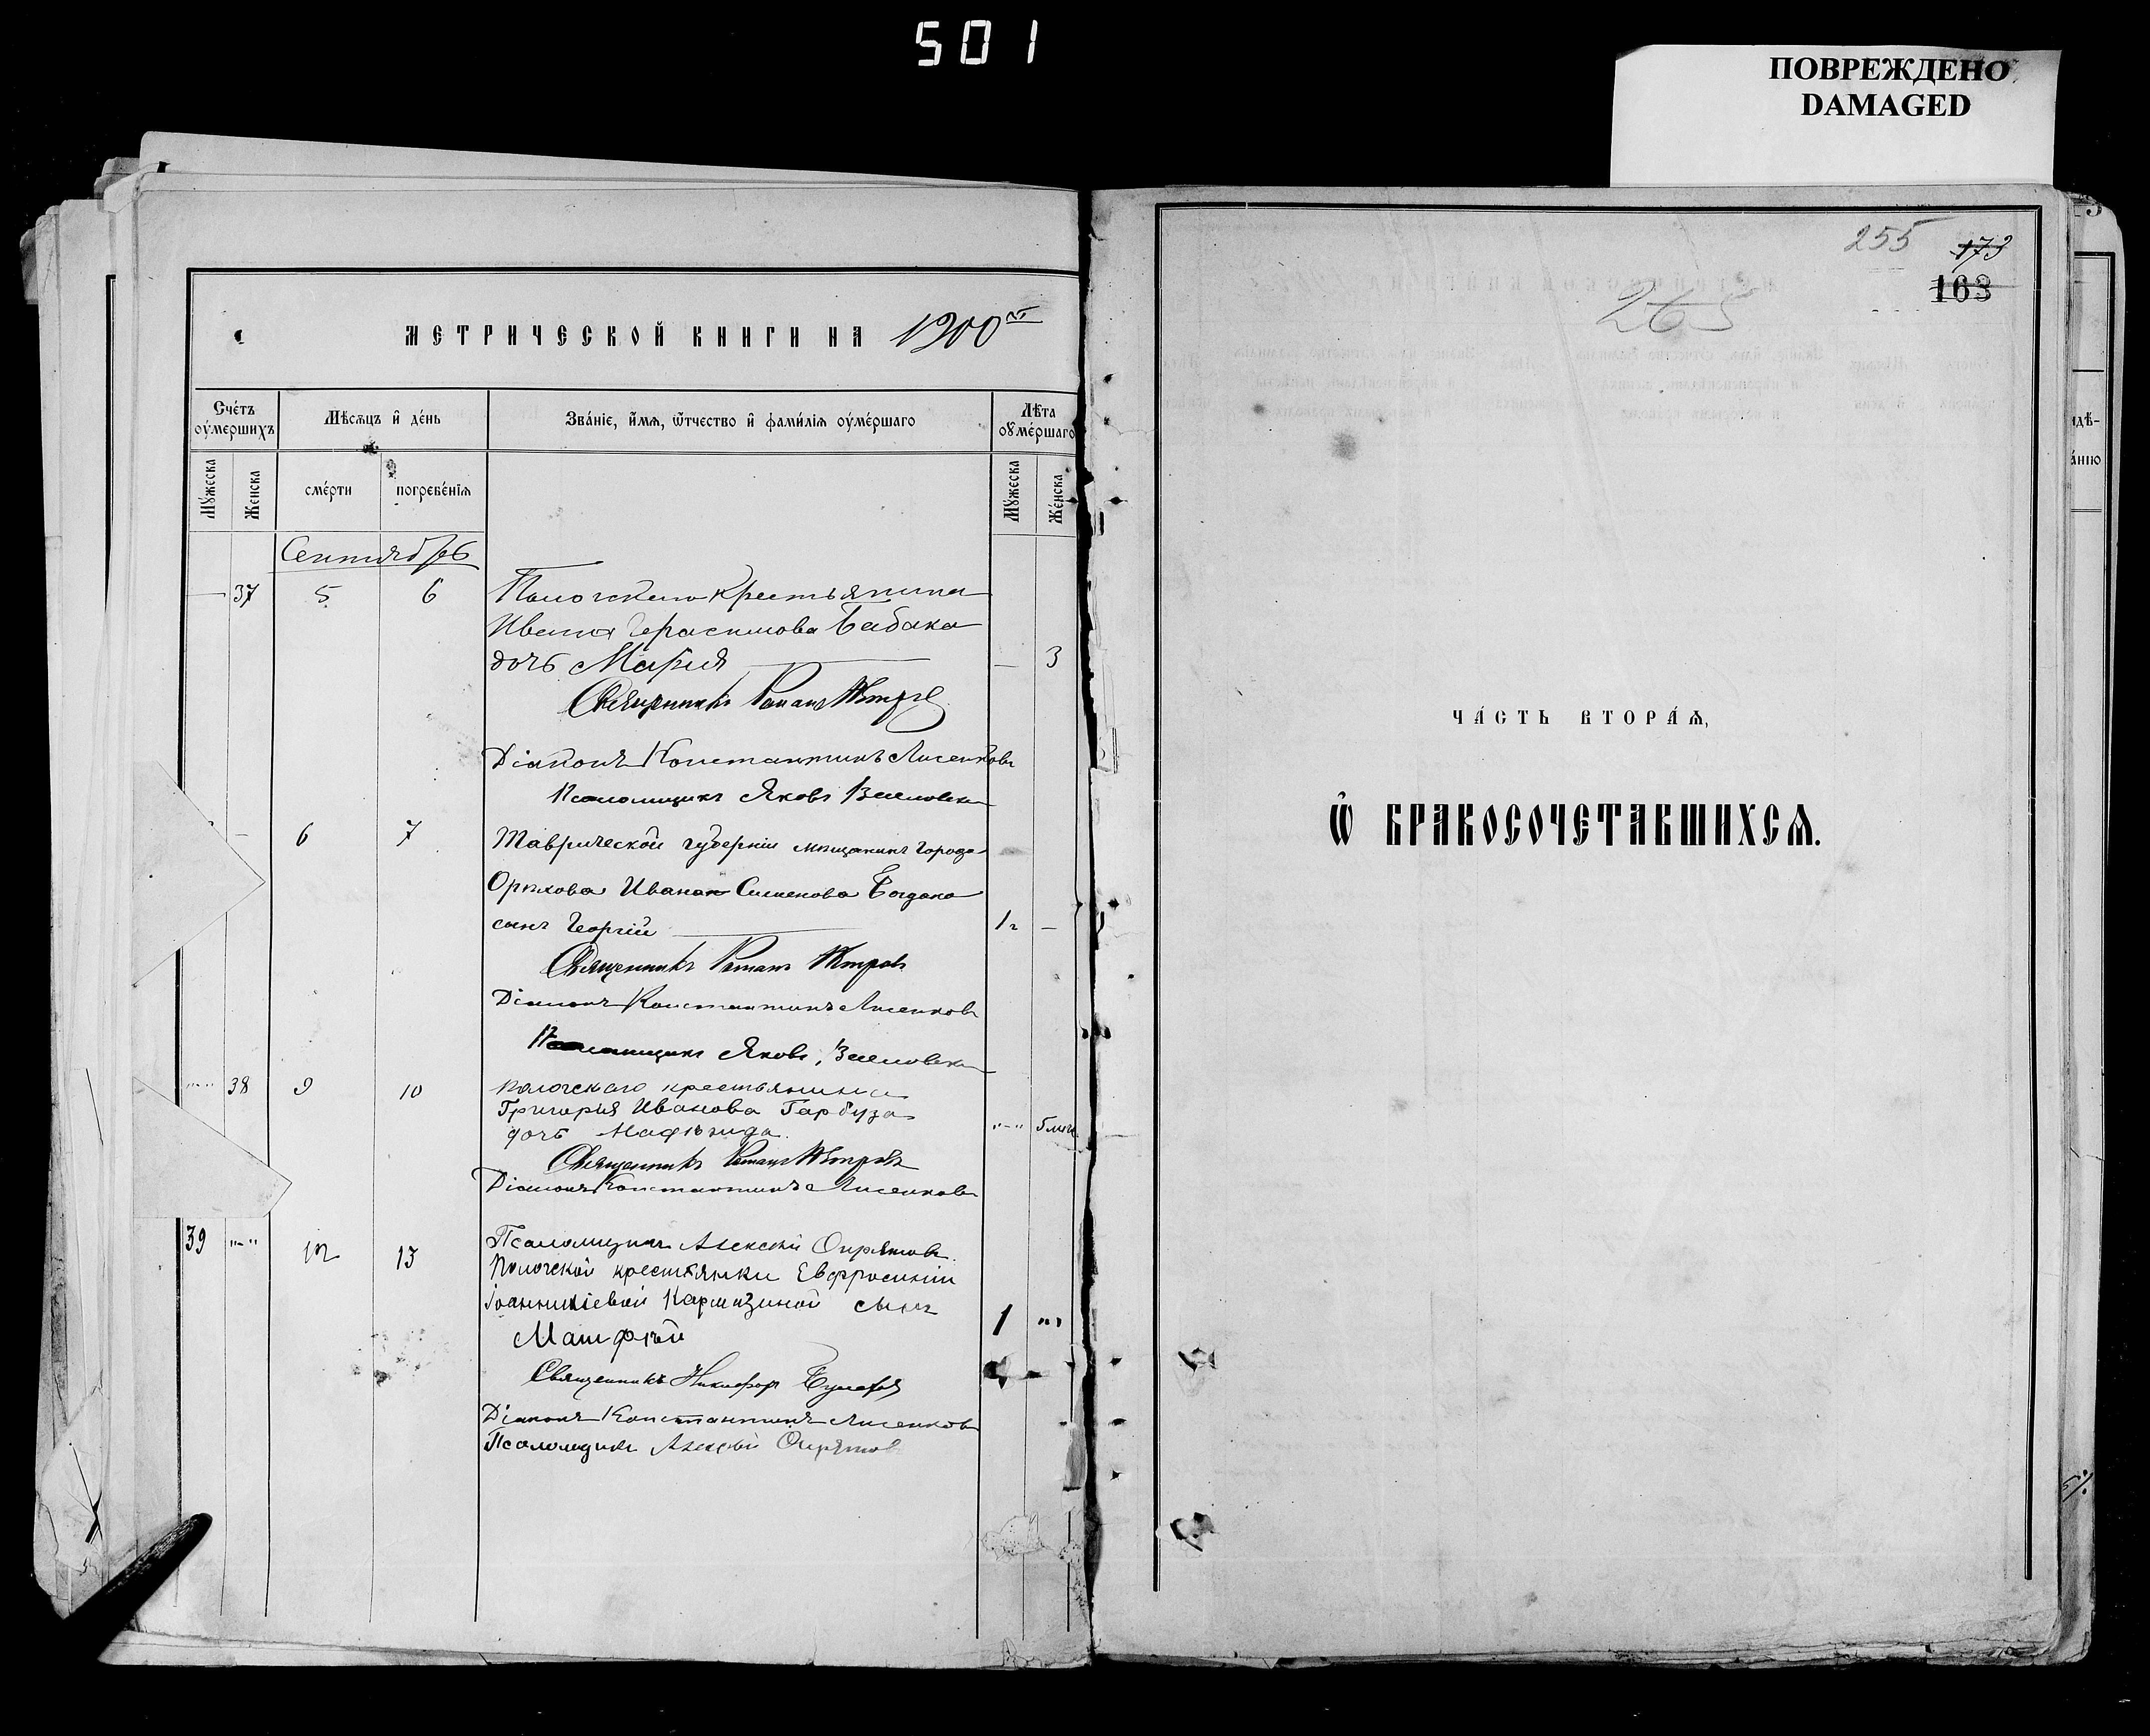 501
ПОВРЕЖДЕНО
DAMAGED
МЕТРИЧЕСКОЙ КНИГИ НА 1900
Сче́тъ оу҆ме́ршихъ
Мѣсѧцъ и҆ де́нь
Зва́нїе, и҆́мѧ, ѻ҆́тчество и҆ фами́лїѧ оу҆ме́ршаго
Лѣ́та оу҆ме́ршаго
Мꙋ́жеска
Же́нска
сме́рти
погребе́нїѧ
Мꙋ́жеска
Же́нска
Сентябрь
— 37 5 6 Пологского крестьянина
Ивана Герасимова Бабака
дочь Мария — 3
Священникъ Роман Петров
Діаконъ Константинъ Лисенковъ
Псаломщикъ Яковъ
— 6 7 Таврической губерніи мѣщанина города
Орѣхова Ивана Симеонова
сынъ Георгій 1 г —
Священникъ Роман Петровъ
Діаконъ Константинъ Лисенковъ
Псаломщикъ Яковъ
"-" 38 9 10 Пологскаго крестьянина
Григорія Иванова Гарбуза
дочь "-" 5 мѣс
Священникъ Роман Петровъ
Діаконъ Константинъ Лисенковъ
Псаломщикъ Алексѣй
39 "-" 12 13 Пологской крестьянки Евфросиніи
Іоанникіевой Кармазиной сынъ 1 "-"
Матфѣй
Священникъ Никифор
Діаконъ Константинъ Лисенковъ
Псаломщикъ Алексѣй
255 173
163
265
ЧА́СТЬ ВТОРА́Ѧ,
Ѡ҆ БРАКОСОЧЕТАВШИХСѦ.
идѣ-
а́нїю